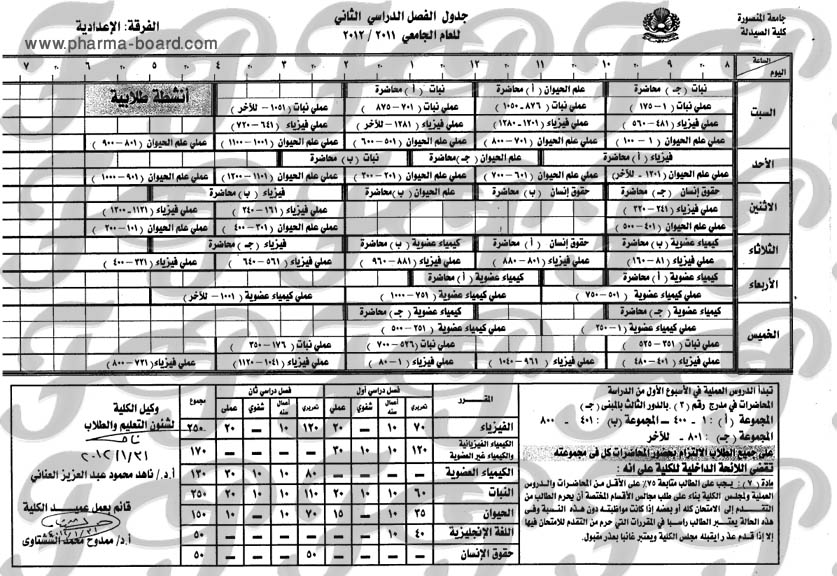 جامعة المنصورة
كلية الصيدلة
جدول الفصل الدراسي الثاني
للعام الجامعي ٢٠١١ / ٢٠١٢
الفرقة: الإعدادية
www.pharma-board.com
الساعة
اليوم
٨ ٩ ١٠ ١١ ١٢ ١ ٢ ٣ ٤ ٥ ٦ ٧
السبت
نبات (جـ) محاضرة علم الحيوان (أ) محاضرة نبات (أ) محاضرة
أنشطة طلابية
عملي نبات (١ – ١٧٥) عملي نبات (٨٧٦ – ١٠٥٠) عملي نبات (٧٠١ – ٨٧٥) عملي نبات (١٠٥١ – للآخر)
عملي فيزياء (٤٨١ – ٥٦٠) عملي فيزياء (١٢٠١ – ١٢٨٠) عملي فيزياء (١٢٨١ – للآخر) عملي فيزياء (٦٤١ – ٧٢٠)
عملي علم الحيوان (١ – ١٠٠) عملي علم الحيوان (٧٠١ – ٨٠٠) عملي علم الحيوان (٥٠١ – ٦٠٠) عملي علم الحيوان (١٠٠١ – ١١٠٠) عملي علم الحيوان (٨٠١ – ٩٠٠)
الأحد
فيزياء (أ) محاضرة علم الحيوان (جـ) محاضرة نبات (ب) محاضرة
عملي علم الحيوان (١٢٠١ – للآخر) عملي علم الحيوان (٦٠١ – ٧٠٠) عملي علم الحيوان (٢٠١ – ٣٠٠) عملي علم الحيوان (١١٠١ – ١٢٠٠) عملي علم الحيوان (٩٠١ – ١٠٠٠)
الاثنين
حقوق إنسان (جـ) محاضرة حقوق إنسان (ب) محاضرة علم الحيوان (ب) محاضرة فيزياء (ب) محاضرة
عملي فيزياء (٢٤١ – ٣٢٠) عملي فيزياء (١٦١ – ٢٤٠) عملي فيزياء (١١٢١ – ١٢٠٠)
عملي علم الحيوان (٤٠١ – ٥٠٠) عملي علم الحيوان (٣٠١ – ٤٠٠) عملي علم الحيوان (١٠١ – ٢٠٠)
الثلاثاء
كيمياء عضوية (ب) محاضرة حقوق إنسان (أ) محاضرة كيمياء عضوية (ب) محاضرة فيزياء (جـ) محاضرة
عملي فيزياء (٨١ – ١٦٠) عملي فيزياء (٨٠١ – ٨٨٠) عملي فيزياء (٨٨١ – ٩٦٠) عملي فيزياء (٥٦١ – ٦٤٠) عملي فيزياء (٣٢١ – ٤٠٠)
الأربعاء
كيمياء عضوية (أ) محاضرة كيمياء عضوية (أ) محاضرة
عملي كيمياء عضوية (٥٠١ – ٧٥٠) عملي كيمياء عضوية (٧٥١ – ١٠٠٠) عملي كيمياء عضوية (١٠٠١ – للآخر)
الخميس
كيمياء عضوية (جـ) محاضرة كيمياء عضوية (جـ) محاضرة
عملي كيمياء عضوية (١ – ٢٥٠) عملي كيمياء عضوية (٢٥١ – ٥٠٠)
عملي نبات (٣٥١ – ٥٢٥) عملي نبات (٥٢٦ – ٧٠٠) عملي نبات (١٧٦ – ٣٥٠)
عملي فيزياء (٤٠١ – ٤٨٠) عملي فيزياء (٩٦١ – ١٠٤٠) عملي فيزياء (١ – ٨٠) عملي فيزياء (١٠٤١ – ١١٢٠) عملي فيزياء (٧٢١ – ٨٠٠)
تبدأ الدروس العملية في الأسبوع الأول من الدراسة
المحاضرات في مدرج رقم (٣) بالدور الثالث بالمبنى (جـ)
المجموعة (أ): ١ – ٤٠٠ – المجموعة (ب): ٤٠١ – ٨٠٠
المجموعة (جـ): ٨٠١ – للآخر
على جميع الطلاب الالتزام بحضور المحاضرات كل في مجموعته
تقضي اللائحة الداخلية للكلية على أنه:
مادة (٧): يجب على الطالب متابعة ٧٥٪ على الأقل من المحاضرات والدروس
العملية ولمجلس الكلية بناء على طلب مجالس الأقسام المختصة أن يحرم الطالب من
التقدم إلى الامتحان كله أو بعضه إذا كانت مواظبته دون هذه النسبة وفي
هذه الحالة يعتبر الطالب راسبا في المقررات التي حرم من التقدم للامتحان فيها
إلا إذا قدم عذر يقبله مجلس الكلية ويعتبر غائبا بعذر مقبول.
المقرر فصل دراسي أول فصل دراسي ثان مجموع
تحريري أعمال سنة شفوي عملي تحريري أعمال سنة شفوي عملي
الفيزياء ٧٠ ١٠ – ٢٠ ١٢٠ ١٠ – ٢٠ ٢٥٠
الكيمياء الفيزيائية والكيمياء غير العضوية ١٢٠ ١٠ ١٠ ٣٠ – – – – ١٧٠
الكيمياء العضوية – – – – ٨٠ ١٠ ١٠ ٣٠ ١٣٠
النبات ٦٠ ١٠ – ٢٠ ١١٠ ١٠ ٢٠ ٢٠ ٢٥٠
الحيوان ٣٥ ١٠ – ١٥ ٧٠ ١٠ – ١٠ ١٥٠
اللغة الإنجليزية ٤٠ ١٠ – – – – – – ٥٠
حقوق الإنسان – – – – ٥٠ – – – ٥٠
وكيل الكلية
لشئون التعليم والطلاب
أ.د/ ناهد محمود عبد العزيز العناني
قائم بعمل عميد الكلية
أ.د/ ممدوح محمد الششتاوى